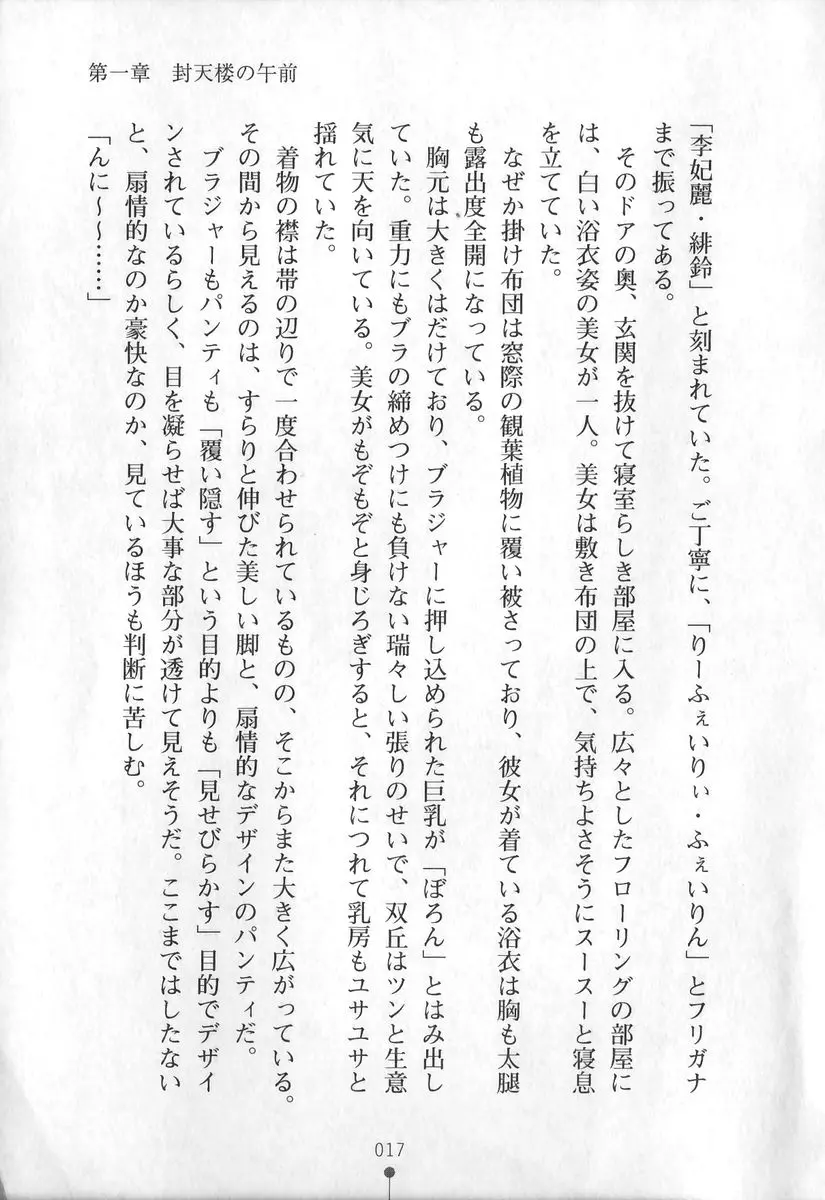 第一章　封天楼の午前
「李妃麗・緋鈴」と刻まれていた。ご丁寧に、「りーふぇいりぃ・ふぇいりん」とフリガナ
まで振ってある。
そのドアの奥、玄関を抜けて寝室らしき部屋に入る。広々としたフローリングの部屋に
は、白い浴衣姿の美女が一人。美女は敷き布団の上で、気持ちよさそうにスースーと寝息
を立てていた。
なぜか掛け布団は窓際の観葉植物に覆い被さっており、彼女が着ている浴衣は胸も太腿
も露出度全開になっている。
胸元は大きくはだけており、ブラジャーに押し込められた巨乳が「ぽろん」とはみ出し
ていた。重力にもブラの締めつけにも負けない瑞々しい張りのせいで、双丘はツンと生意
気に天を向いている。美女がもぞもぞと身じろぎすると、それにつれて乳房もユサユサと
揺れていた。
着物の襟は帯の辺りで一度合わせられているものの、そこからまた大きく広がっている。
その間から見えるのは、すらりと伸びた美しい脚と、扇情的なデザインのパンティだ。
ブラジャーもパンティも「覆い隠す」という目的よりも「見せびらかす」目的でデザイ
ンされているらしく、目を凝らせば大事な部分が透けて見えそうだ。ここまではしたない
と、扇情的なのか豪快なのか、見ているほうも判断に苦しむ。
「んに～～……」
017